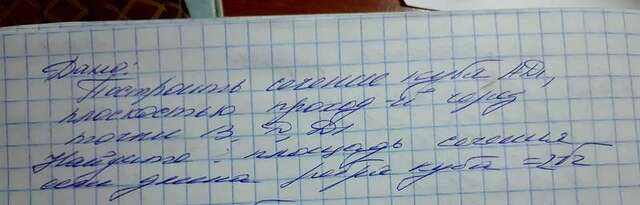 Дано:
Построить сечение куба AD₁,
плоскостью проход-й через
точки B, D₁
Найдите: площадь сечения
если длина ребра куба = 2√2